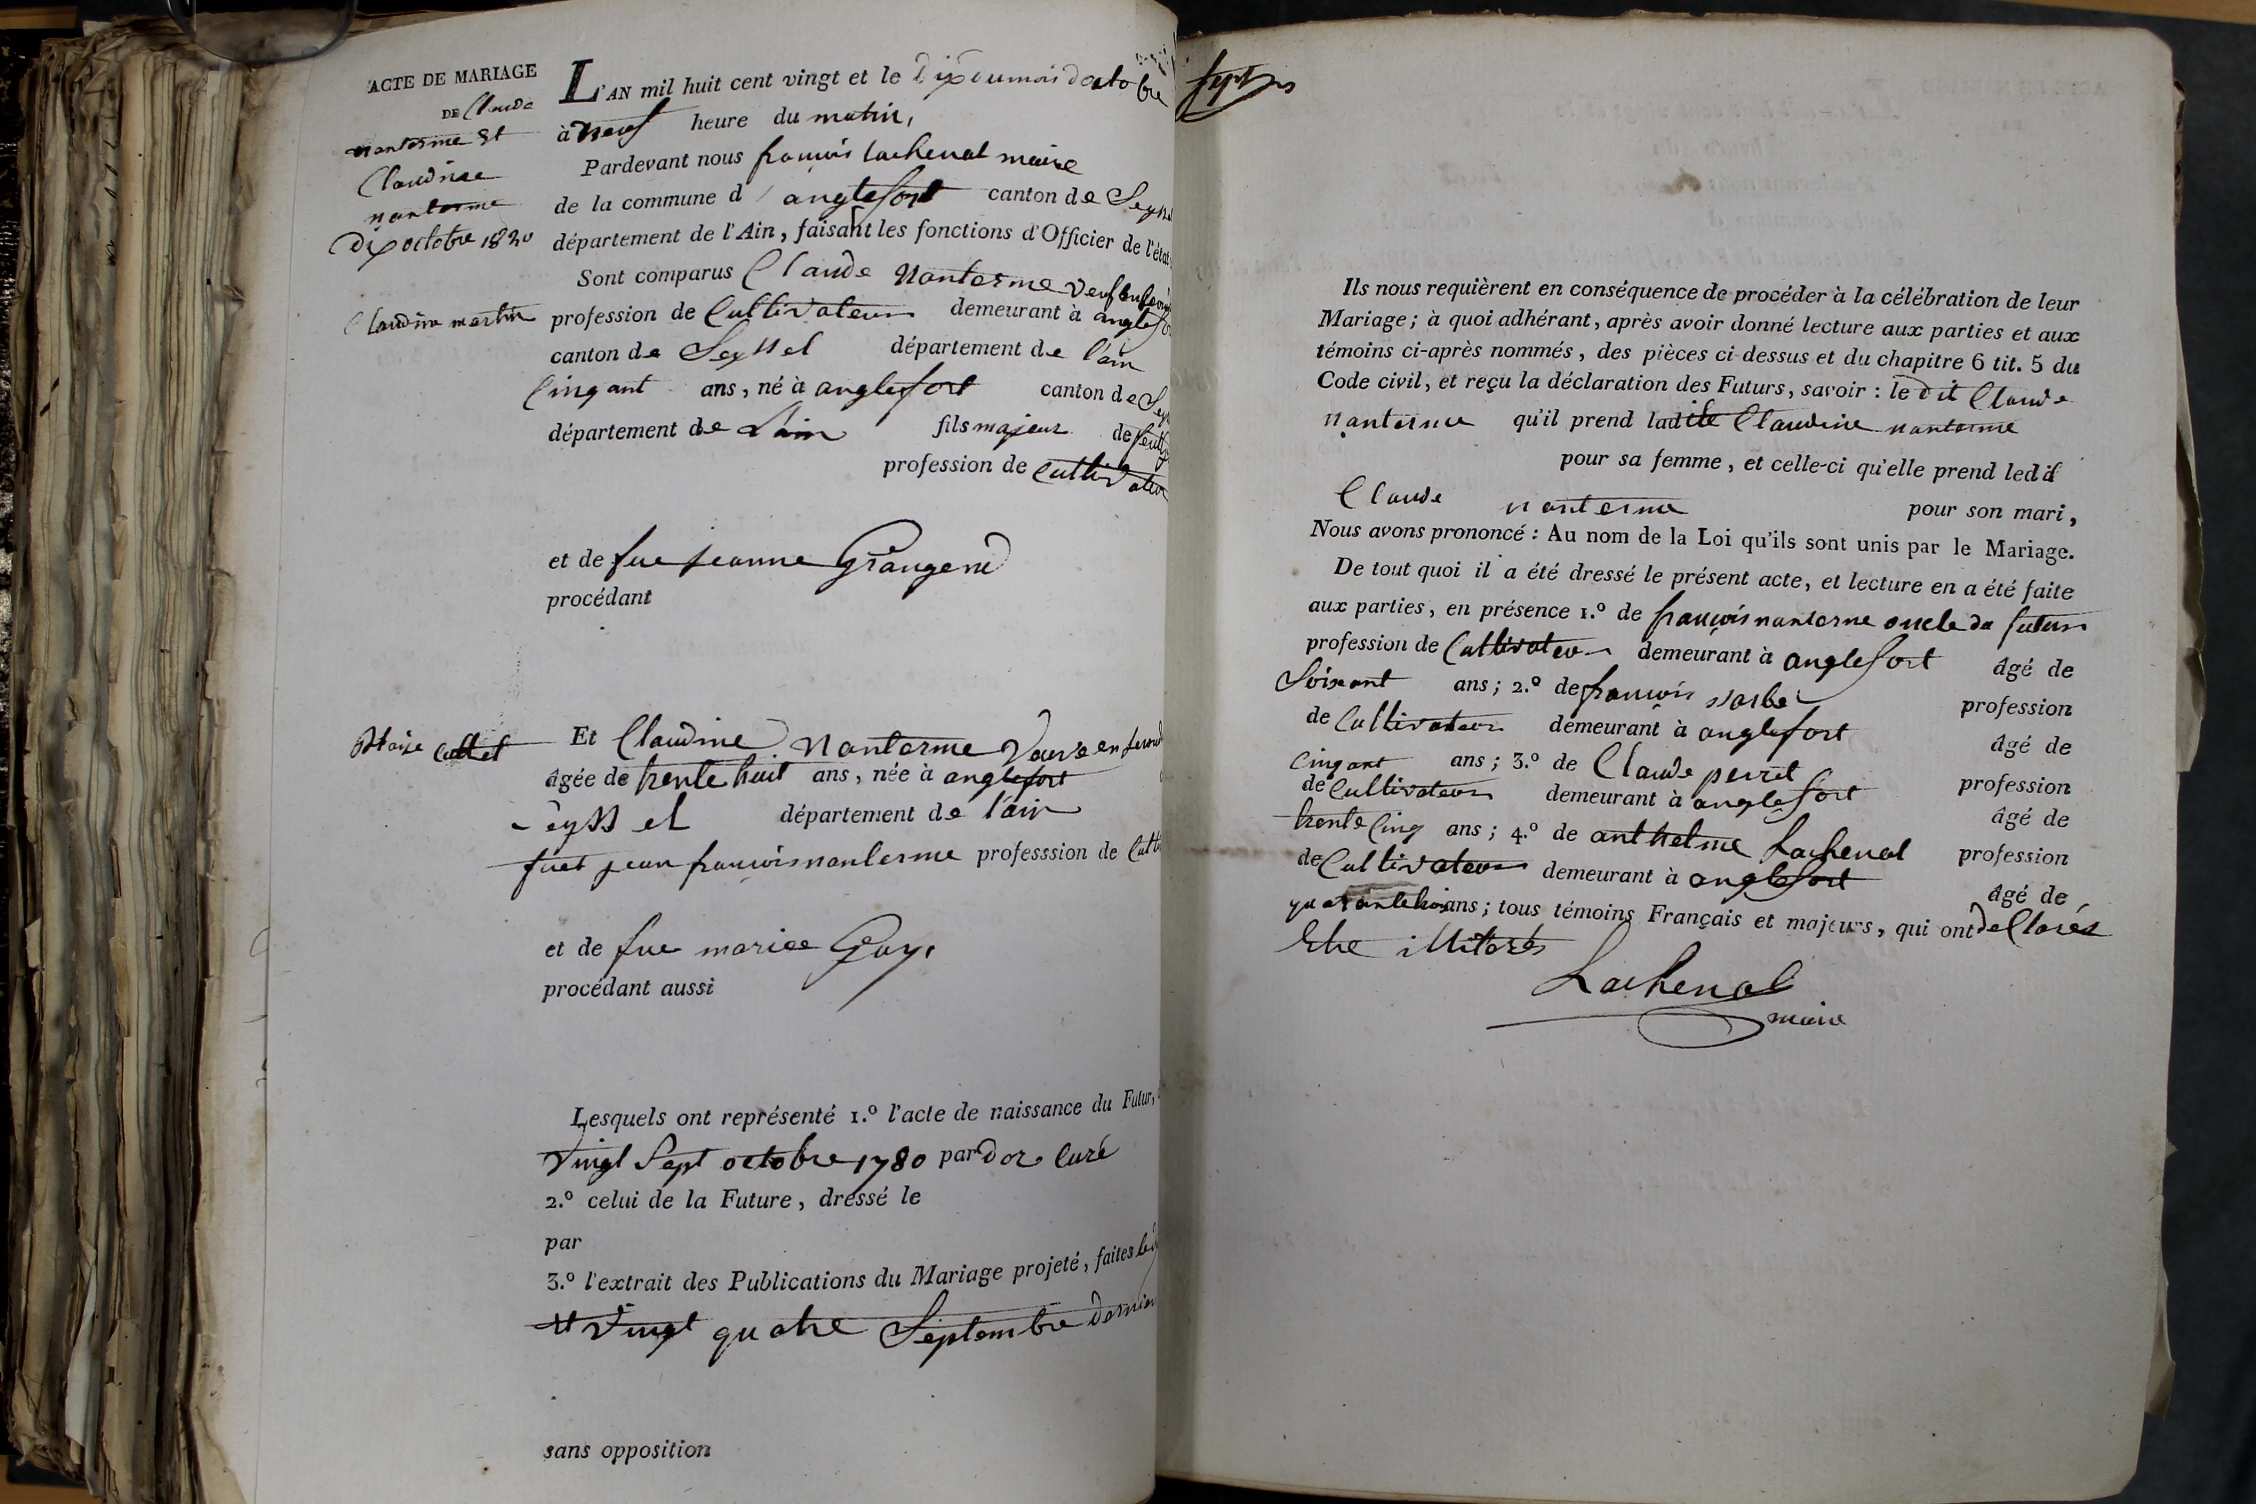 ACTE DE MARIAGE
DE Claude
nanterme Et
Claudine
nanterme
Dix octobre 1820
L'AN mil huit cent vingt et le Dix du mois doctobre
à neuf heure du matin,
Pardevant nous francois lachenal maire
de la commune d'anglefort canton de Seyssel
département de l'Ain, faisant les fonctions d'Officier de l'état
Sont comparus Claude nanterme veuf
Claudine martin
profession de Cultivateur demeurant à anglefort
canton de Seyssel département de l'ain
Cinqant ans, né à anglefort canton de
département de L'ain fils majeur de feu
profession de Cultivateur
et de fue jeanne Grangend
procédant
Et Claudine nanterme Veuve en
Collet
âgée de trente huit ans, née à anglefort
Seyssel département de l'ain
jean francois nanterme professsion de
et de fue mariee Guy.
procédant aussi
Lesquels ont représenté 1.º l'acte de naissance du Futur,
vingt Sept octobre 1780 par Curé
2.º celui de la Future, dressé le
par
3.º l'extrait des Publications du Mariage projeté, faites le
et vingt quatre Septembre dernier
sans opposition
Ils nous requièrent en conséquence de procéder à la célébration de leur
Mariage; à quoi adhérant, après avoir donné lecture aux parties et aux
témoins ci-après nommés, des pièces ci-dessus et du chapitre 6 tit. 5 du
Code civil, et reçu la déclaration des Futurs, savoir: le dit Claude
nanterme qu'il prend ladite Claudine nanterme
pour sa femme, et celle-ci qu'elle prend ledit
Claude nanterme pour son mari,
Nous avons prononcé: Au nom de la Loi qu'ils sont unis par le Mariage.
De tout quoi il a été dressé le présent acte, et lecture en a été faite
aux parties, en présence 1.º de francois nanterme oncle du futur
profession de Cultivateur demeurant à anglefort âgé de
Soixant ans; 2.º de francois profession
de Cultivateur demeurant à anglefort âgé de
Cinqant ans; 3.º de Claude perret profession
de Cultivateur demeurant à anglefort âgé de
trente Cinq ans; 4.º de anthelme Lachenal profession
de Cultivateur demeurant à anglefort âgé de
ans; tous témoins Français et majeurs, qui ont declarés
Etre illiterés
Lachenal
maire